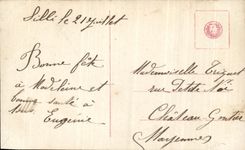 Sillé le 21 Juillet
Bonne fête
à Madeleine et
bonne santé à
tous, Eugénie
Mademoiselle
rue
Château-Gontier
Mayenne